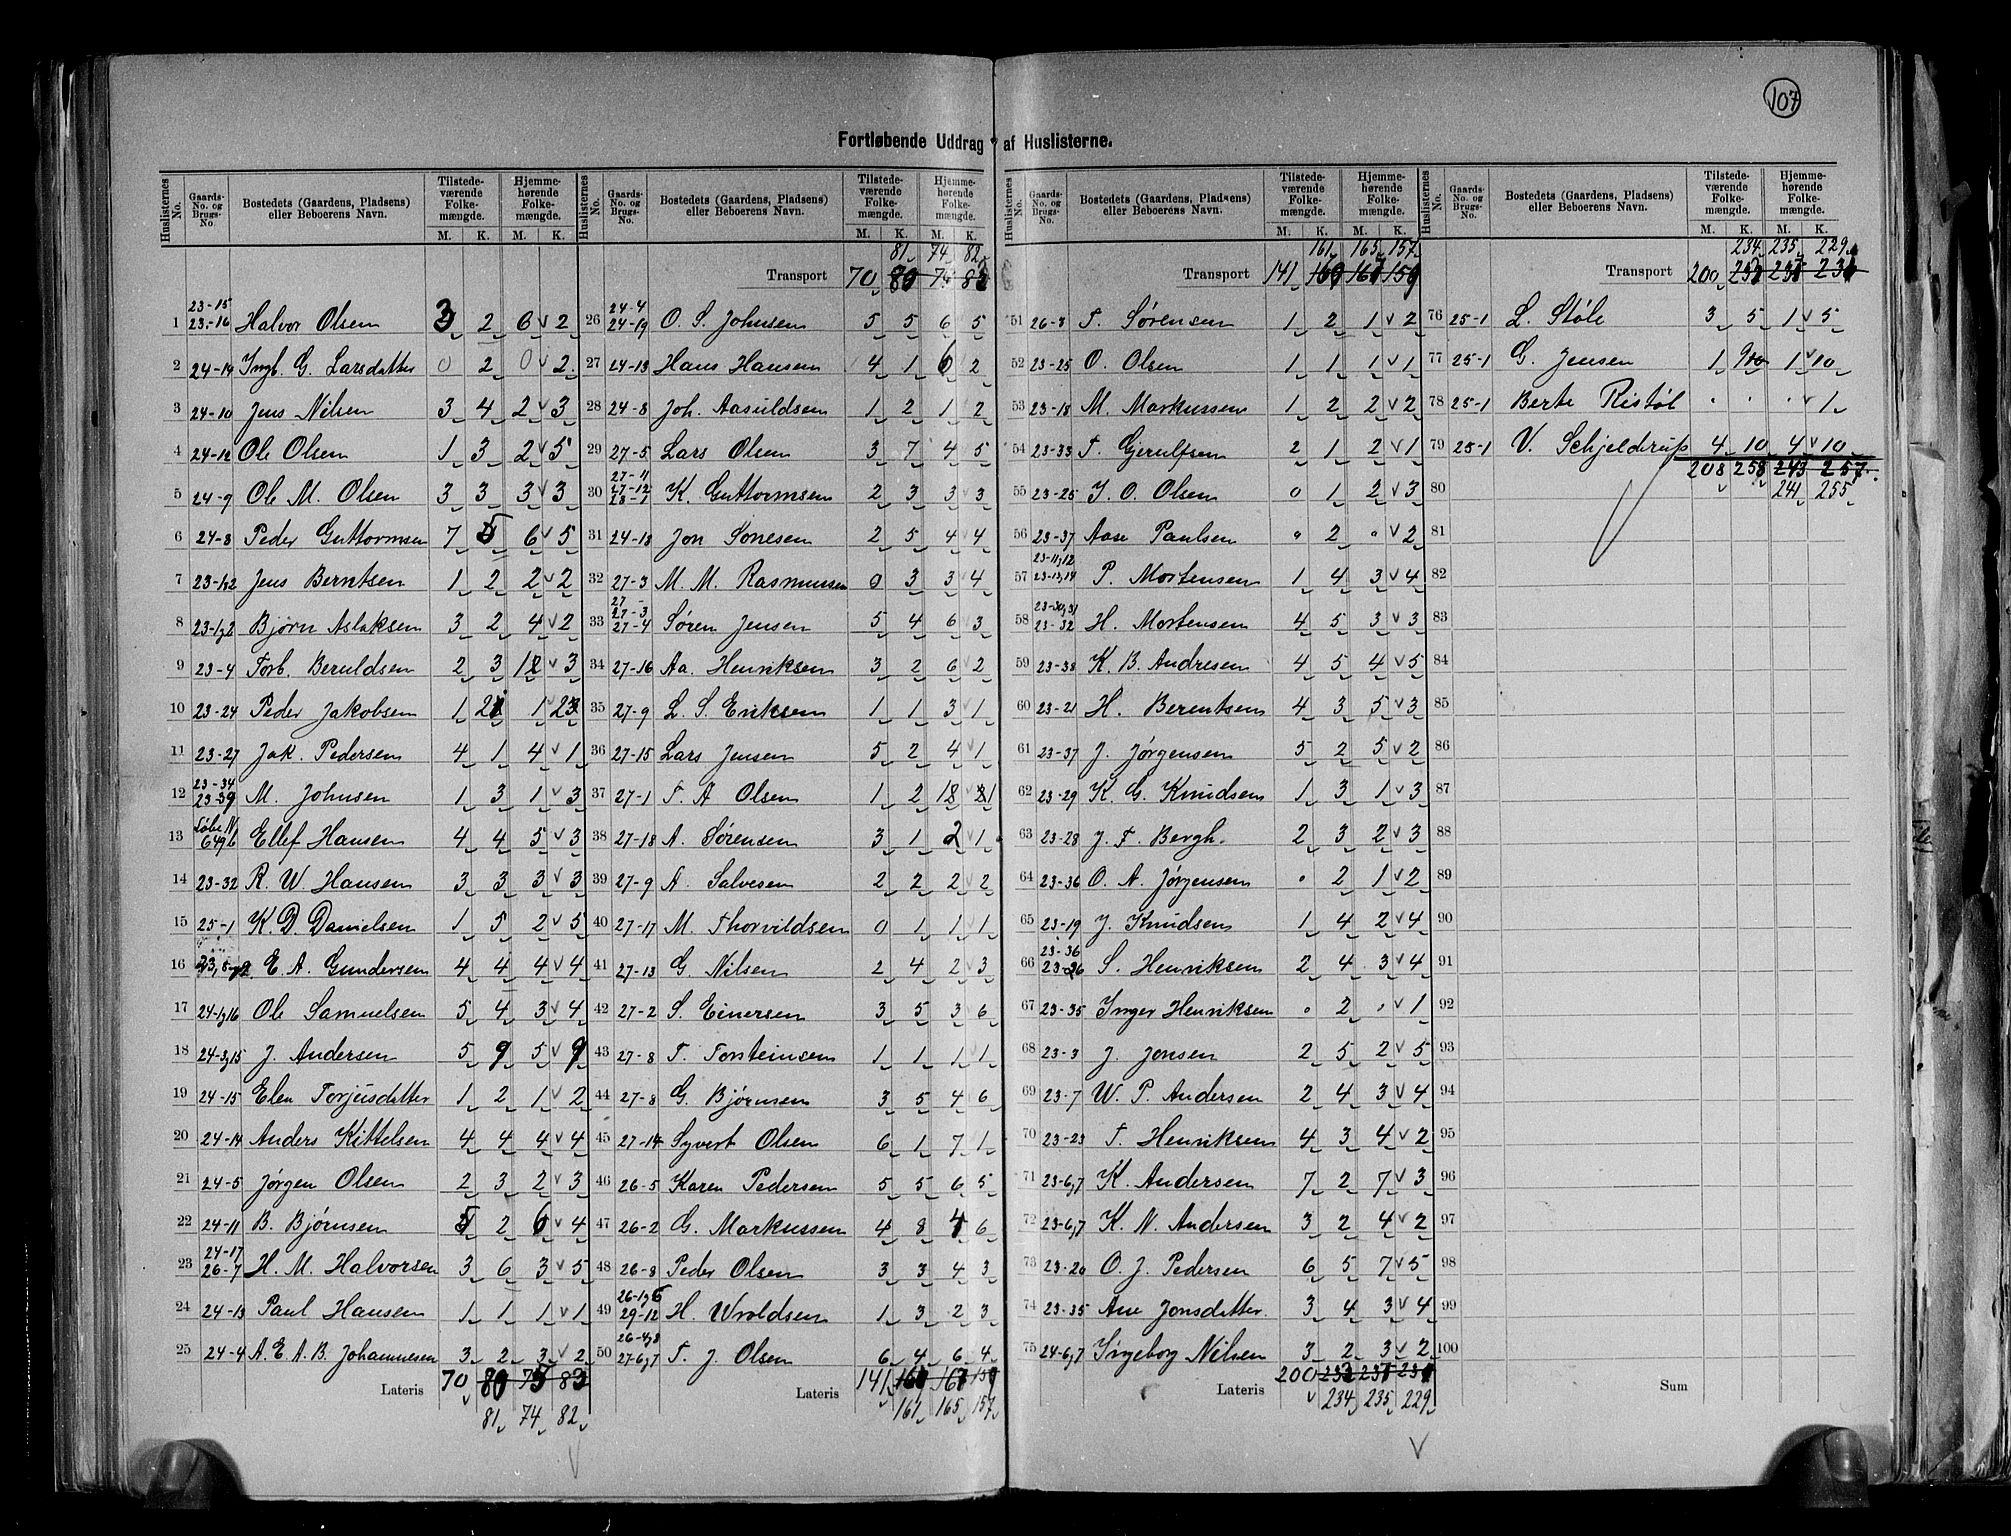 107
Fortløbende Uddrag af Huslisterne.
Huslisternes No. | Gaards-No. og Brugs-No. | Bostedets (Gaardens, Pladsens) eller Beboerens Navn. | Tilstedeværende Folkemængde. M. K. | Hjemmehørende Folkemængde. M. K.
1 23-15 23-16 Halvor Olsen 3 2 6 v 2
2 24-14 Ingb. G. Larsdatter 0 2 0 v 2
3 24-10 Jens Nilsen 3 4 2 v 3
4 24-12 Ole Olsen 1 3 2 v 5
5 24-9 Ole M. Olsen 3 3 3 v 3
6 24-8 Peder Guttormsen 7 5 6 v 5
7 23-1,2 Jens Berntsen 1 2 2 v 2
8 23-1,2 Bjørn Aslaksen 3 2 4 v 2
9 23-4 Torb. Beruldsen 2 3 1 v 3
10 23-24 Peder Jakobsen 1 2 1 v 2
11 23-27 Jak. Pedersen 4 1 4 v 1
12 23-34 23-39 M. Johnsen 1 3 1 v 3
13 Løbe N 649b Ellef Hansen 4 4 5 v 3
14 23-32 R. W. Hansen 3 3 3 v 3
15 25-1 K. D. Danielsen 1 5 2 v 5
16 E. A. Gundersen 4 4 4 v 4
17 24-1,16 Ole Samuelsen 5 4 3 v 4
18 24-3,15 J. Andersen 5 9 5 v 9
19 24-15 Elen Torjusdatter 1 2 1 v 2
20 24-14 Anders Kittelsen 4 4 4 v 4
21 24-5 Jørgen Olsen 2 3 2 v 3
22 24-11 B. Bjørnsen 5 2 6 v 4
23 24-17 26-7 H. M. Halvorsen 3 6 3 v 5
24 24-13 Paul Hansen 1 1 1 v 1
25 24-4 A. E. A. B. Johannesen 3 2 3 v 2
Lateris 70 80 75 83
81 74 82
Huslisternes No. | Gaards-No. og Brugs-No. | Bostedets (Gaardens, Pladsens) eller Beboerens Navn. | Tilstedeværende Folkemængde. M. K. | Hjemmehørende Folkemængde. M. K.
81 74 82
Transport 70 80 75 83
26 24-4 24-19 O. S. Johnsen 5 5 6 5
27 24-13 Hans Hansen 4 1 6 2
28 24-8 Joh. Aasuldsen 1 2 1 2
29 27-5 Lars Olsen 3 7 4 5
30 27-11 27-12 K. Guttormsen 2 3 3 v 3
31 24-18 Jon Tønesen 2 5 4 v 4
32 27-3 M. M. Rasmussen 0 3 3 v 4
33 27-3 27-4 Søren Jensen 5 4 6 3
34 27-16 Aa. Henriksen 3 2 6 v 2
35 27-9 L. S. Eriksen 1 1 3 v 1
36 27-15 Lars Jensen 5 2 4 v 1
37 27-1 T. A Olsen 1 2 1 v 1
38 27-18 A. Sørensen 3 1 2 v 1
39 27-9 A. Salvesen 2 2 2 v 2
40 27-17 M. Thorvildsen 0 1 1 v 1
41 27-13 G. Nilsen 2 4 2 v 3
42 27-2 S. Einersen 3 5 3 6
43 27-8 T. Torsteinsen 1 1 1 v 1
44 27-8 G. Bjørnsen 3 5 4 6
45 27-14 Syvert Olsen 6 1 7 1
46 26-5 Karen Pedersen 5 5 6 5
47 26-2 G. Markussen 4 8 4 6
48 26-8 Peder Olsen 3 3 4 3
49 26-1,6 29-12 H. Wroldsen 1 3 2 3
50 26-4,8 27-6,7 T. J. Olsen 6 4 6 4
Lateris 141 160 167 159
161 165 157
Huslisternes No. | Gaards-No. og Brugs-No. | Bostedets (Gaardens, Pladsens) eller Beboerens Navn. | Tilstedeværende Folkemængde. M. K. | Hjemmehørende Folkemængde. M. K.
161 165 157
Transport 141 160 167 159
51 26-3 T. Sørensen 1 2 1 v 2
52 23-25 O. Olsen 1 1 1 v 1
53 23-18 M. Markussen 1 2 2 v 2
54 23-33 T. Gjerulfsen 2 1 2 v 1
55 23-25 J. O. Olsen 0 1 2 v 3
56 23-37 Aase Paulsen " 2 " v 2
57 23-11,12 23-13,14 P. Mortensen 1 4 3 v 4
58 23-30,31 23-32 H. Mortensen 4 5 3 v 3
59 23-38 K. B. Andresen 4 5 4 v 5
60 23-21 H. Berentsen 4 3 5 v 3
61 23-37 J. Jørgensen 5 2 5 v 2
62 23-29 K. G. Knudsen 1 3 1 v 3
63 23-28 J. F. Bergh. 2 3 2 v 3
64 23-36 O. A. Jørgensen " 2 1 v 2
65 23-19 J. Knudsen 1 4 2 v 4
66 23-36 23-26 S. Henriksen 2 4 3 v 4
67 23-35 Inger Henriksen " 2 " v 1
68 23-3 J. Jonsen 2 5 2 v 5
69 23-7 W. P. Andersen 2 4 3 v 4
70 23-23 T. Henriksen 4 3 4 v 2
71 23-6,7 K. Andersen 7 2 7 v 3
72 23-6,7 K. N. Andersen 3 2 4 v 2
73 23-20 O. J. Pedersen 6 5 7 v 5
74 23-35 Ane Jonsdatter. 3 4 3 v 4
75 24-6,7 Ingeborg Nilsen 3 2 3 v 2
Lateris 200 233 237 231
v 234 235 229
Huslisternes No. | Gaards-No. og Brugs-No. | Bostedets (Gaardens, Pladsens) eller Beboerens Navn. | Tilstedeværende Folkemængde. M. K. | Hjemmehørende Folkemængde. M. K.
234 235 229
Transport 200 233 237 231
76 25-1 L. Støle 3 5 1 v 5
77 25-1 G. Jensen 1 9 1 v 10
78 25-1 Berte Ristøl " " " v 1
79 25-1 V. Schjeldrup 4 10 4 v 10
208 258 243 257
80 241 255
81
82
83
84
85
86
87
88
89
90
91
92
93
94
95
96
97
98
99
100
Sum